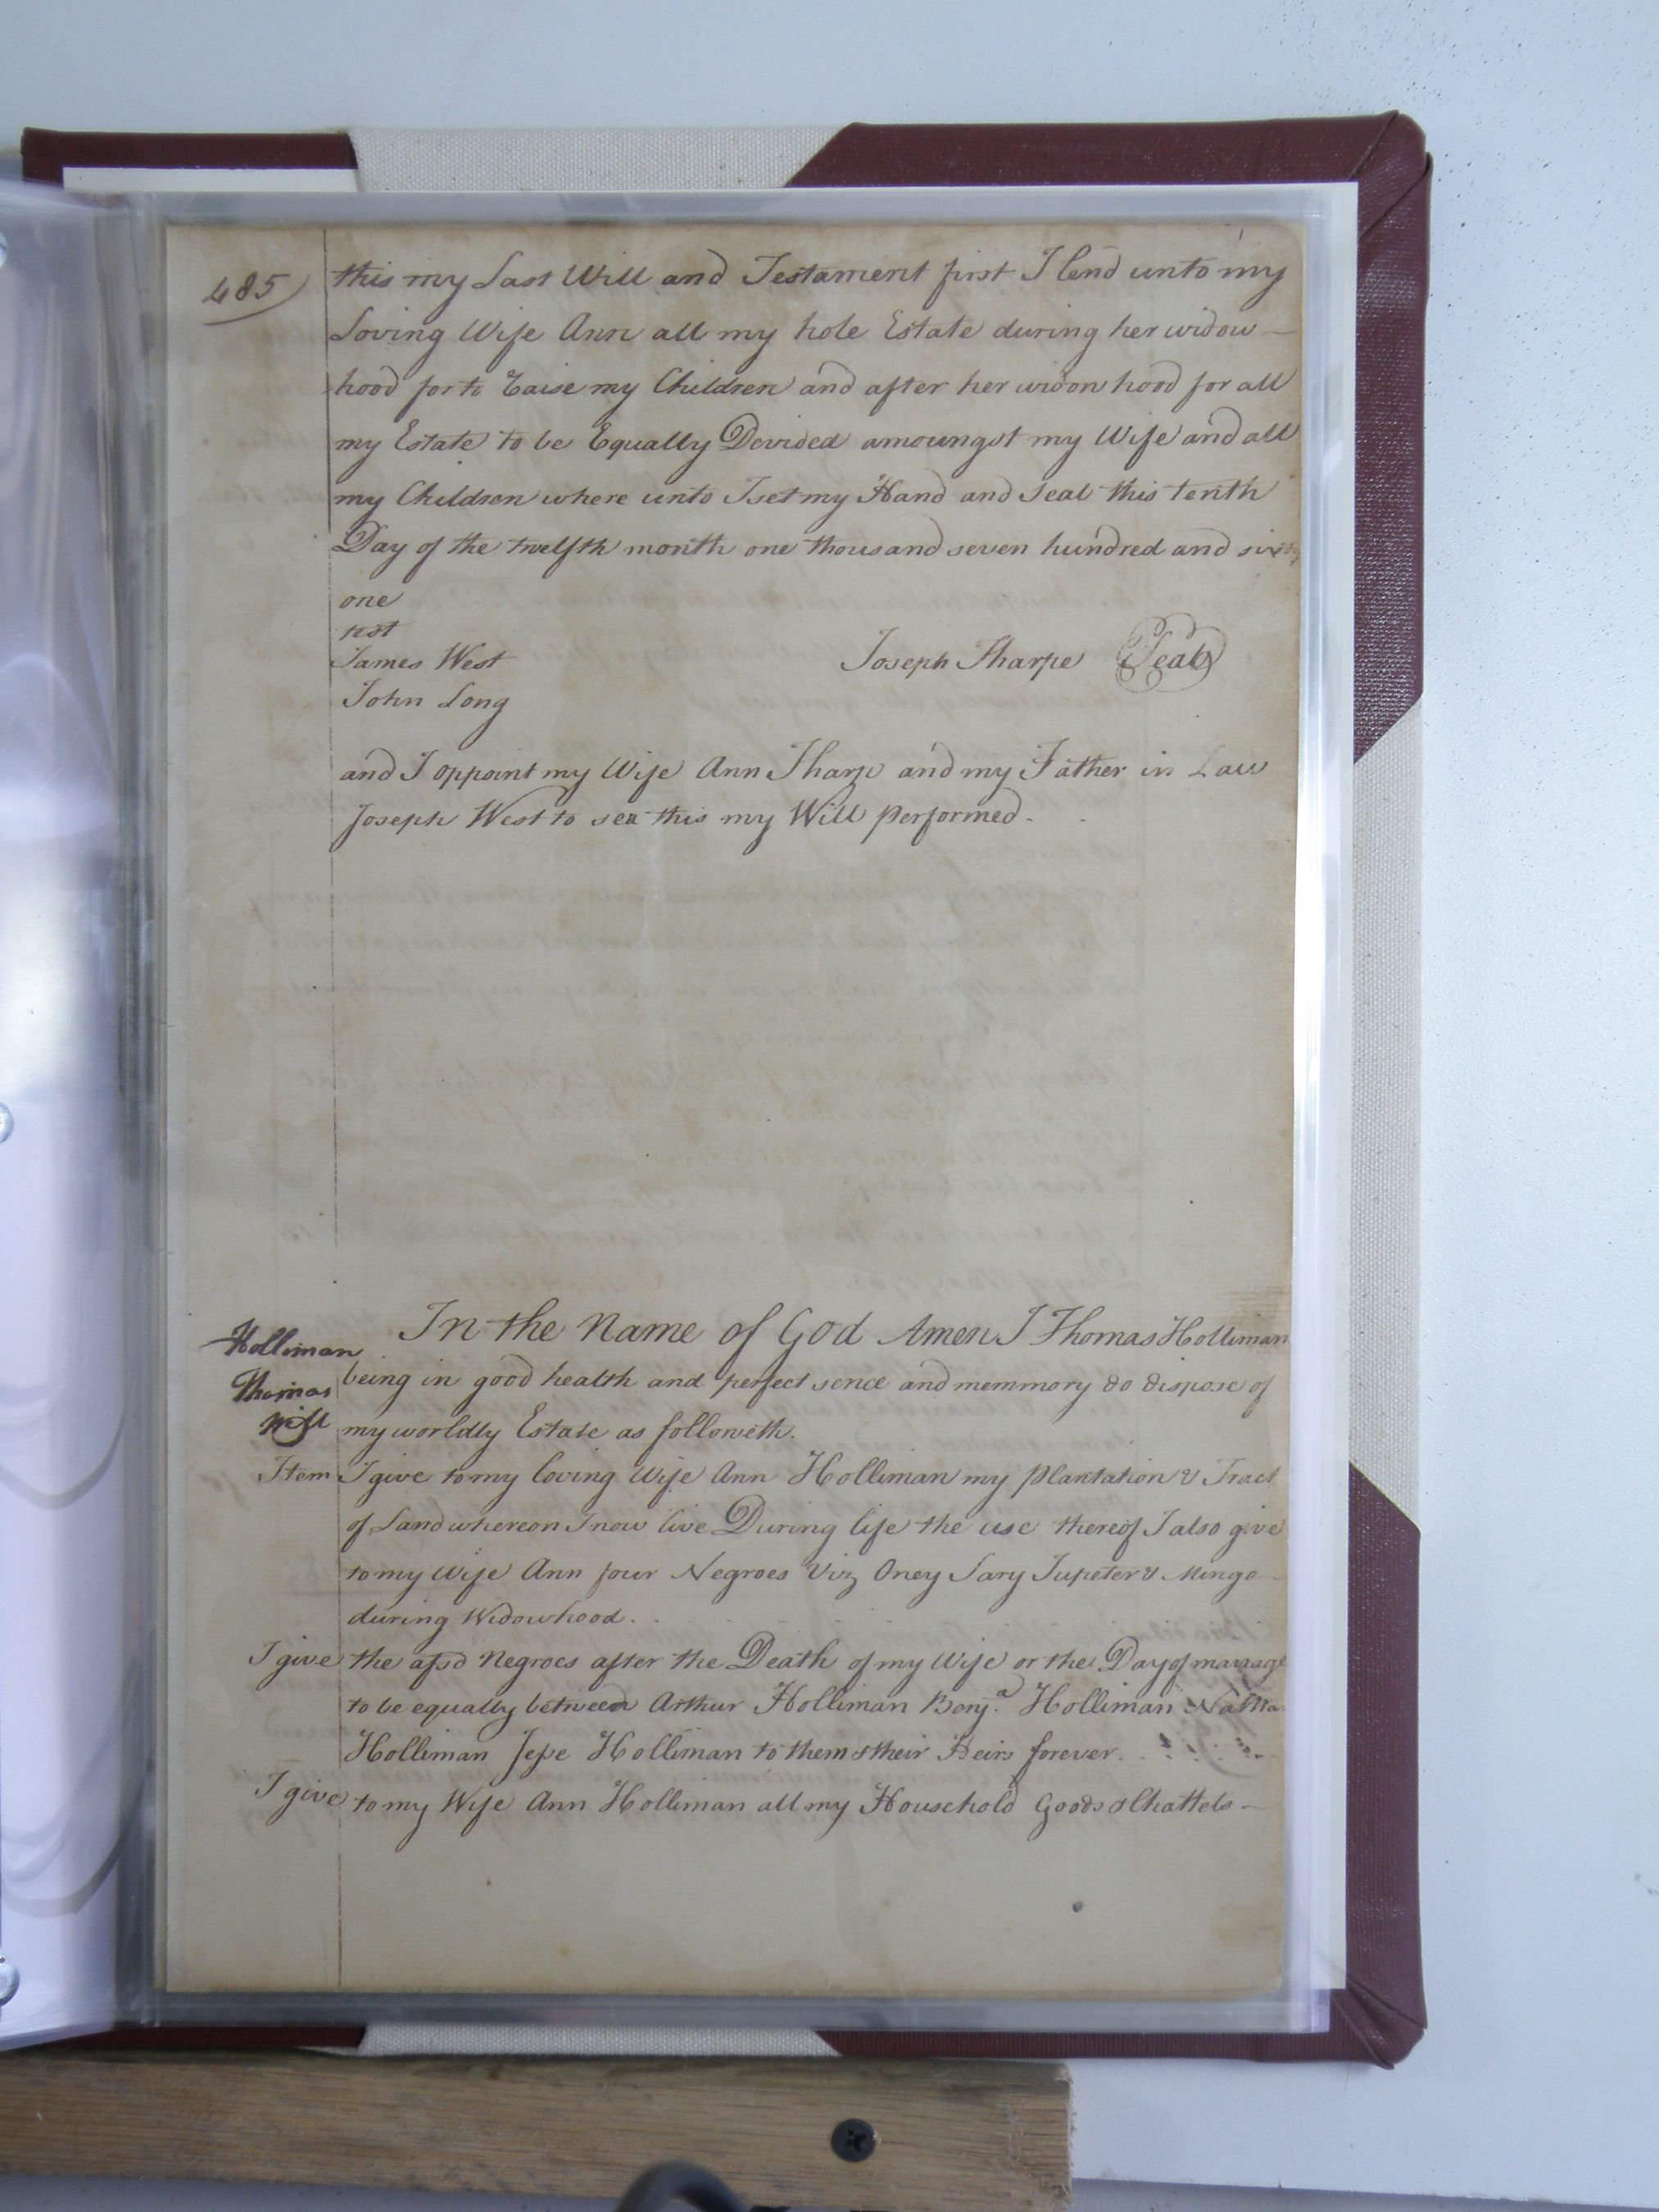 485
this my Last Will and Testament first I lend unto my
Loving Wife Ann all my hole Estate during her widow
hood for to Raise my Children and after her widon hood for all
my Estate to be Equally Devided amoungst my Wife and all
my Children where unto I set my Hand and Seal this tenth
Day of the twelfth month one thousand seven hundred and sixty
one
James West
Joseph Tharpe Seal
John Long
and I oppoint my Wife Ann Tharp and my Father in Law
Joseph West to see this my Will performed.
In the Name of God Amen I Thomas Holliman
Holliman
Thomas
Will
being in good health and perfect sence and memmory do dispose of
my worldly Estate as followeth.
Item I give to my loving Wife Ann Holliman my Plantation & Tract
of Land whereon I now live During life the use thereof I also give
to my Wife Ann four Negroes Viz Oney Sary Jupeter & Mingo
during Widowhood.
I give the afsd Negroes after the Death of my Wife or the Day of marrage
to be equally between Arthur Holliman Benj.a Holliman
Holliman Jesse Holliman to them & their Heirs forever.
I give to my Wife Ann Holliman all my Household Goods & Chattels